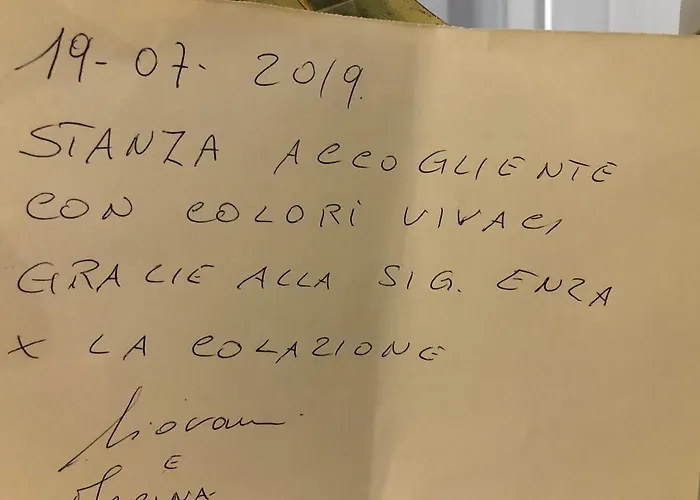 19-07-2019
STANZA ACCOGLIENTE
CON COLORI VIVACI
GRAZIE ALLA SIG. ENZA
X LA COLAZIONE
E